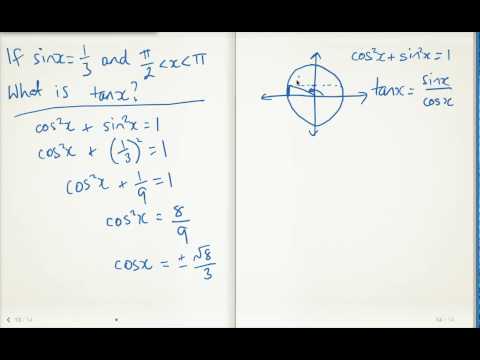 If sinx = 1/3 and π/2 < x < π
What is tanx?
cos²x + sin²x = 1
cos²x + (1/3)² = 1
cos²x + 1/9 = 1
cos²x = 8/9
cosx = ± √8/3
cos²x + sin²x = 1
tanx = sinx/cosx